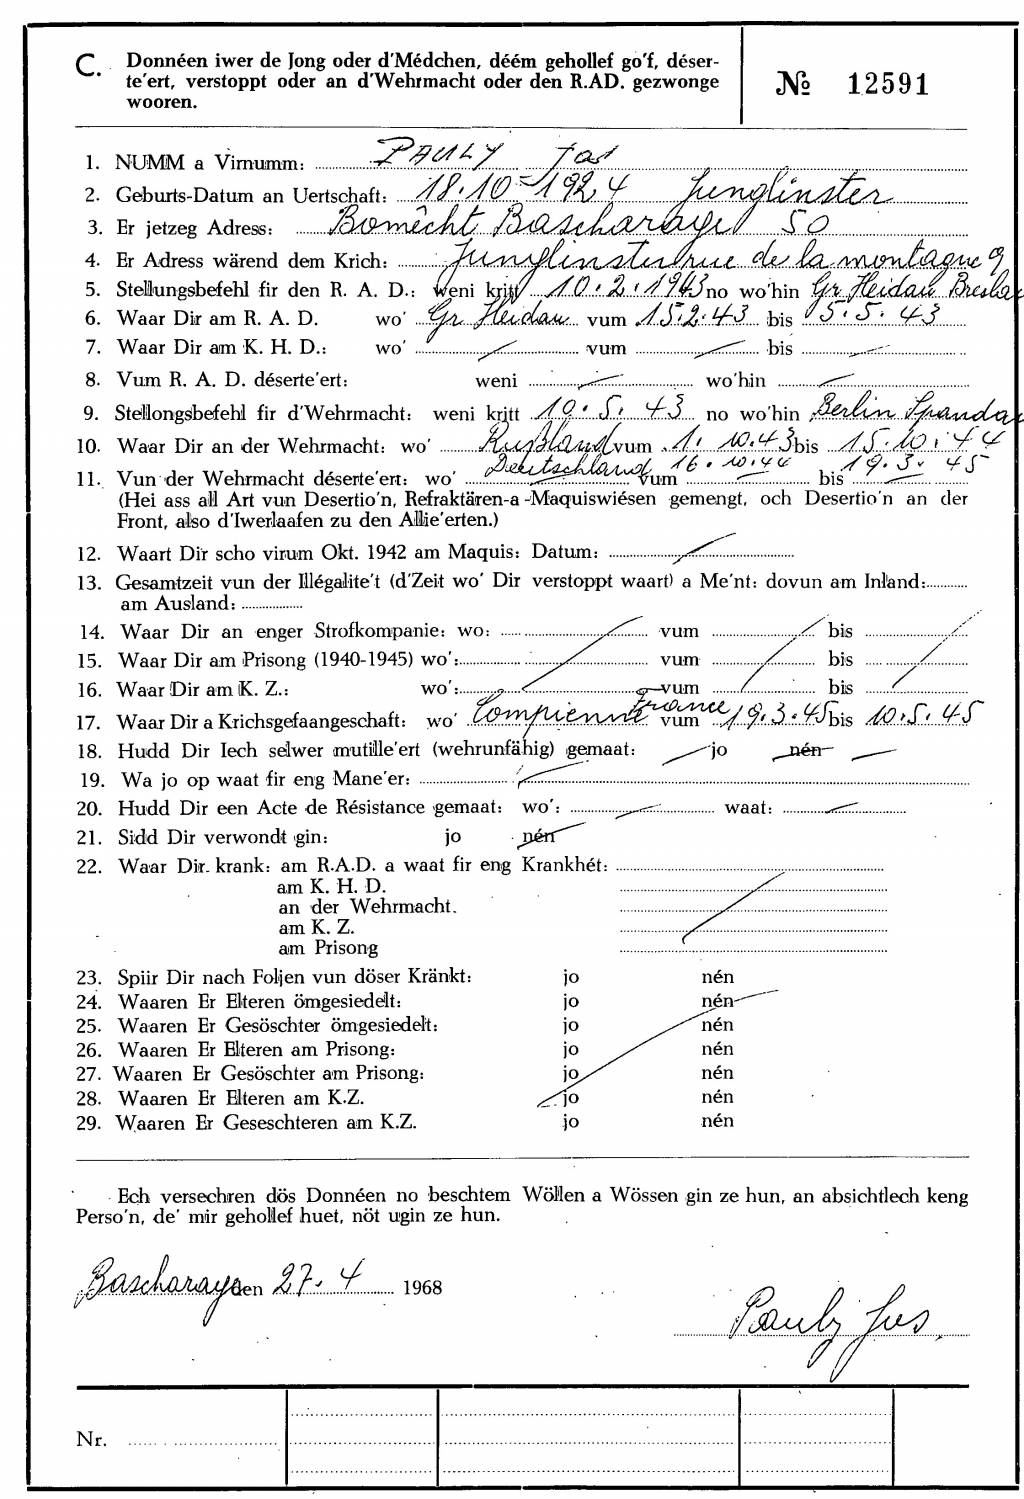 C. Donnéen iwer de Jong oder d'Médchen, déém gehollef go'f, déser-
te'ert, verstoppt oder an d'Wehrmacht oder den R.AD. gezwonge
wooren.
№ 12591
1. NUMM a Virnumm: PAULY Jos
2. Geburts-Datum an Uertschaft: 18.10-1924 Junglinster
3. Er jetzeg Adress: Bomêcht Bascharage 50
4. Er Adress wärend dem Krich: Junglinster rue de la montagne 9
5. Stellungsbefehl fir den R. A. D.: weni kritt 10.2.1943 no wo'hin Gr Heidau Breslau
6. Waar Dir am R. A. D. wo' Gr Heidau vum 15.2.43 bis 5.5.43
7. Waar Dir am K. H. D.: wo' vum bis
8. Vum R. A. D. déserte'ert: weni wo'hin
9. Stellongsbefehl fir d'Wehrmacht: weni kritt 10.5.43 no wo'hin Berlin Spandau
10. Waar Dir an der Wehrmacht: wo' Rußland vum 1.10.43 bis 15.10.44
Deutschland 16.10.44 19.3.45
11. Vun der Wehrmacht déserte'ert: wo' vum bis
(Hei ass all Art vun Desertio'n, Refraktären-a-Maquiswiésen gemengt, och Desertio'n an der
Front, also d'Iwerlaafen zu den Allie'erten.)
12. Waart Dir scho virum Okt. 1942 am Maquis: Datum:
13. Gesamtzeit vun der Illégalite't (d'Zeit wo' Dir verstoppt waart) a Me'nt: dovun am Inland:
am Ausland:
14. Waar Dir an enger Strofkompanie: wo: vum bis
15. Waar Dir am Prisong (1940-1945) wo': vum bis
16. Waar Dir am K. Z.: wo': vum bis
17. Waar Dir a Krichsgefaangeschaft: wo' Compienne France vum 19.3.45 bis 10.5.45
18. Hudd Dir Iech selwer mutille'ert (wehrunfähig) gemaat: jo nén
19. Wa jo op waat fir eng Mane'er:
20. Hudd Dir een Acte de Résistance gemaat: wo': waat:
21. Sidd Dir verwondt gin: jo nén
22. Waar Dir krank: am R.A.D. a waat fir eng Krankhét:
am K. H. D.
an der Wehrmacht.
am K. Z.
am Prisong
23. Spiir Dir nach Foljen vun döser Kränkt: jo nén
24. Waaren Er Elteren ömgesiedelt: jo nén
25. Waaren Er Gesöschter ömgesiedelt: jo nén
26. Waaren Er Elteren am Prisong: jo nén
27. Waaren Er Gesöschter am Prisong: jo nén
28. Waaren Er Elteren am K.Z. jo nén
29. Waaren Er Geseschteren am K.Z. jo nén
Ech versechren dös Donnéen no beschtem Wöllen a Wössen gin ze hun, an absichtlech keng
Perso'n, de' mir gehollef huet, nöt ugin ze hun.
Bascharage den 27.4 1968
Pauly Jos.
Nr.